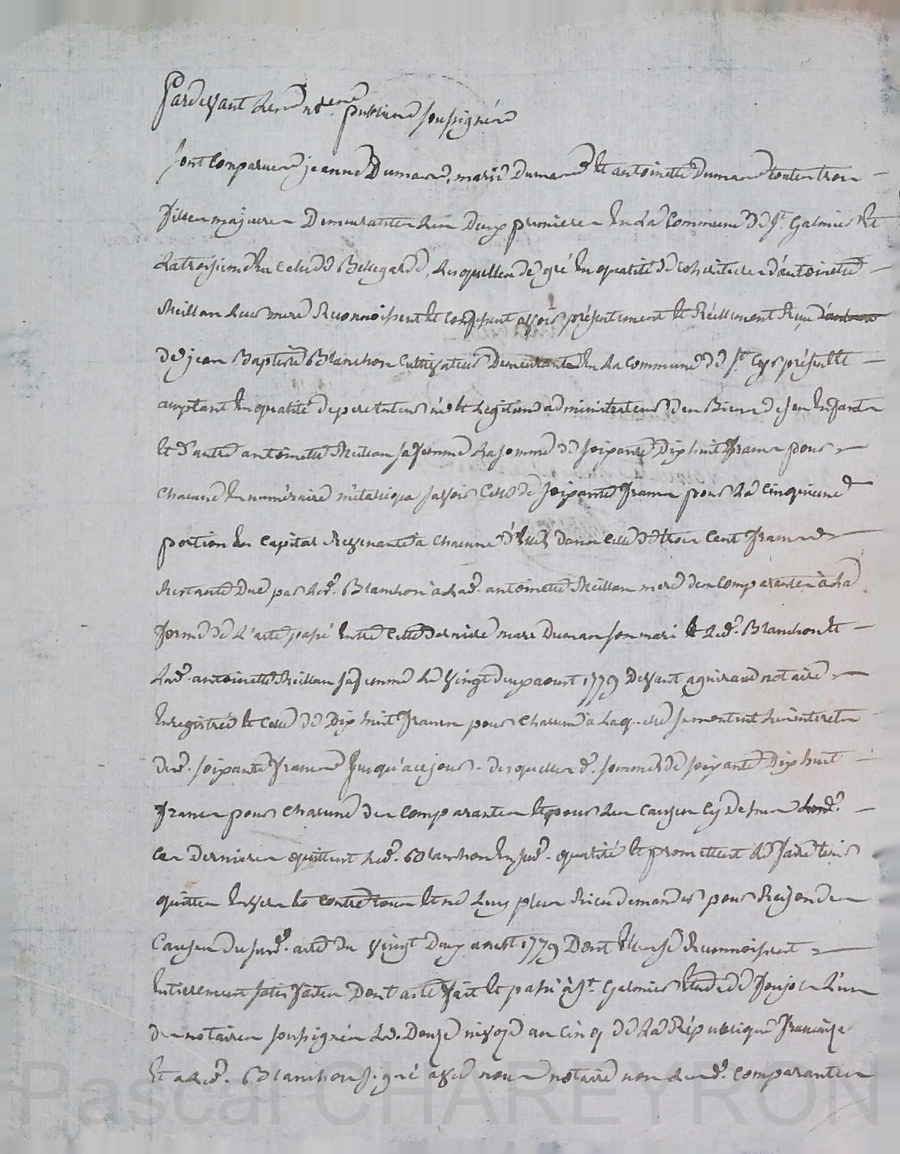 Pardevant les notres publics soussignés
sont comparues jeanne Dumas, marie Dumas et antoinette Dumas toutes trois
filles majeures Demeurantes les Deux premieres en la Commune de St Galmier et
la troisieme en celle de Bellegarde, lesquelles de gré en qualité de cohéritieres d'antoinette
Meillan leur mere Reconnoissent et confessent avoir présentement et Réellement Reçu
de jean Baptiste Blanchon Cultivateur Demeurant en la Commune de St Cyr présent et
acceptant en qualité de pere tuteur né et légitime administrateur des Biens de ses Enfants
et d'autre antoinette Meillan sa femme la somme de soixante Dix huit francs pour
chacune en numéraire métalique savoir celle de soixante francs pour la cinquieme
portion en Capital Revenante à chacune d'elles dans celle de trois Cent francs
Restante Due par led. Blanchon à lad. antoinette Meillan mere des comparantes à la
forme de l'acte passé entre cette derniere marc Dumas son mari et led. Blanchon et
lad. antoinette Meillan sa femme le vingt deux aoust 1779 Devant aguiraud notaire
Enregistrée et celle de Dix huit francs pour chacune à laquelle se montent les interets
desd. soixante francs jusqu'à ce jour - desquelles d. sommes de soixante Dix huit
francs pour chacune des comparantes et pour les causes cy dessus
ces dernieres quittent led. Blanchon esd. qualité et promettent le faire tenir
quitte envers et contre tous et ne leur plus Rien demander pour Raison des
causes du susd. acte du vingt Deux aoust 1779 Dont elles se Reconnoissent
entierement satisfaites Dont acte fait et passé à St Galmier étude de Foujols l'un
des notaires soussignés le Douze nivose an cinq de la République française
et a led. Blanchon signé avec nous notaires non lesd. comparantes
Pascal CHAREYRON